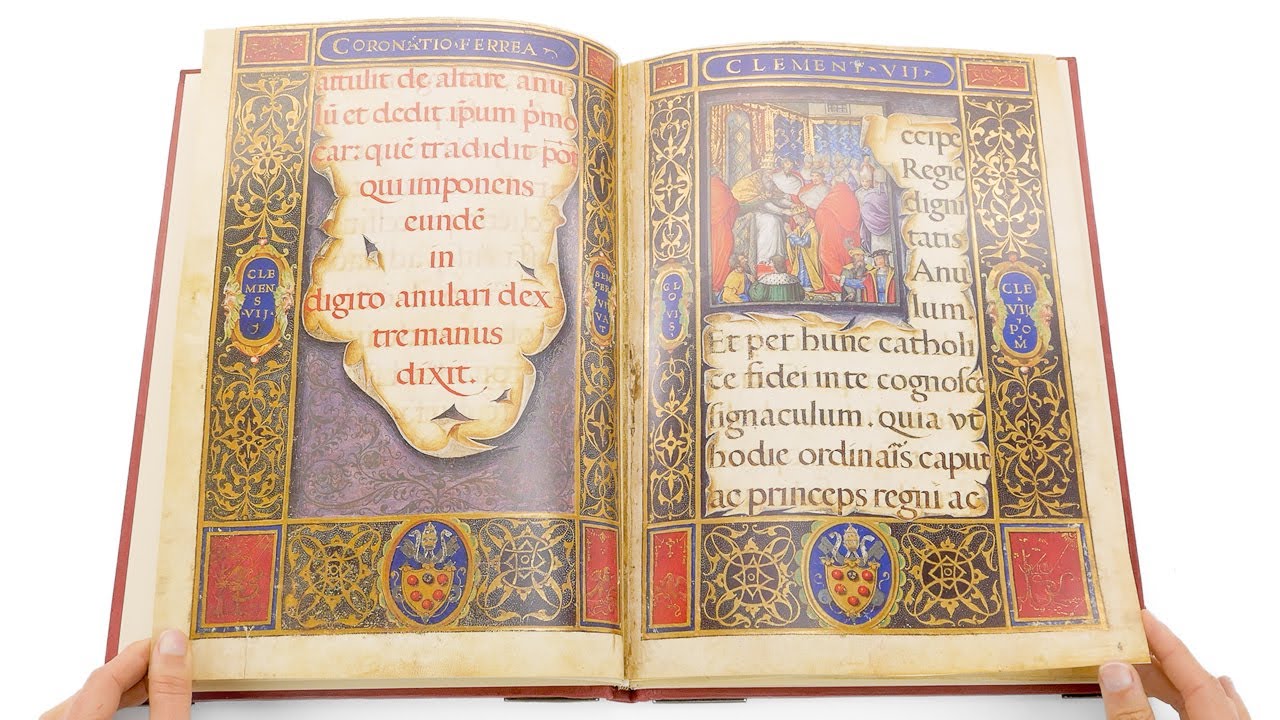 CORONATIO·FERREA
attulit de altare anu
lū et dedit ip̄um p̄mo
car: quē tradidit
qui imponens
eundē
in
digito anulari dex
tre manus
dixit.
CLE
MEN
S
VIJ
SEM
PER
VI
VA
T
CLEMENT·VIJ
ccipe
Regie
digni
tatis
Anu
lum.
Et per hunc catholi
ce fidei in te cognosce
signaculum. quia vt
hodie ordinar̄is caput
ac princeps regni ac
GLO
VI
S
CLE
VII
PO
M